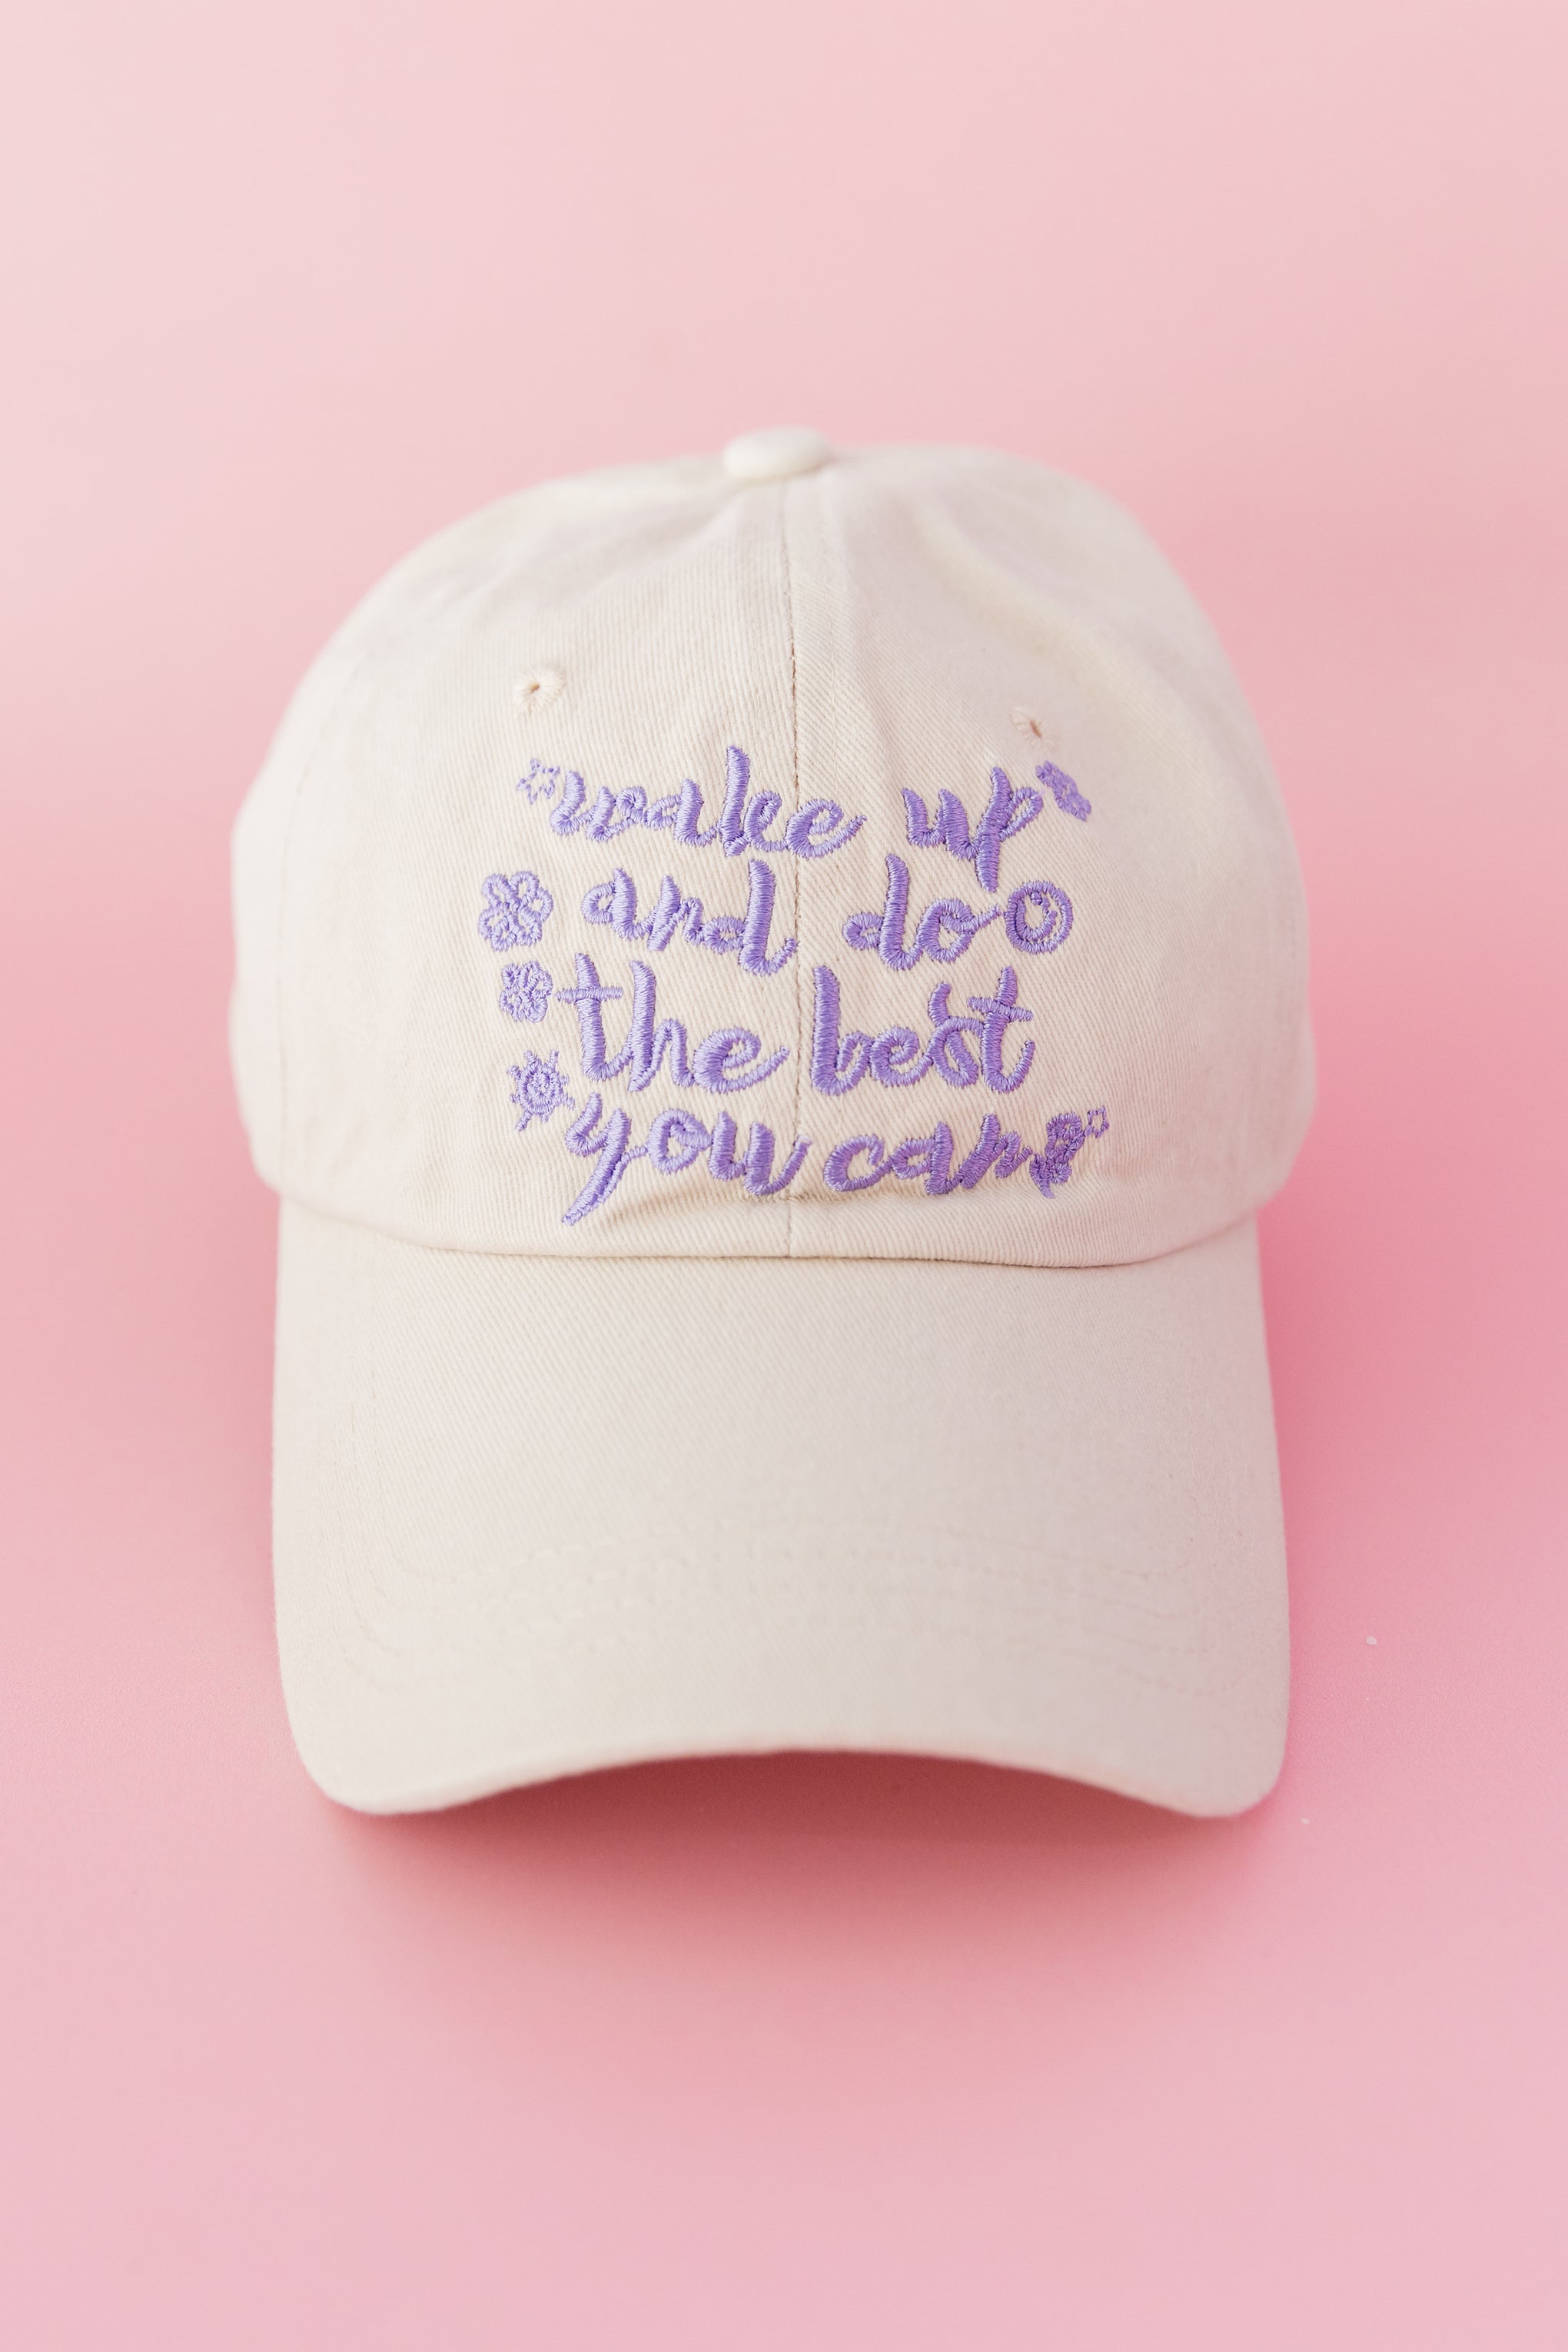 wake up
and do
the best
you can